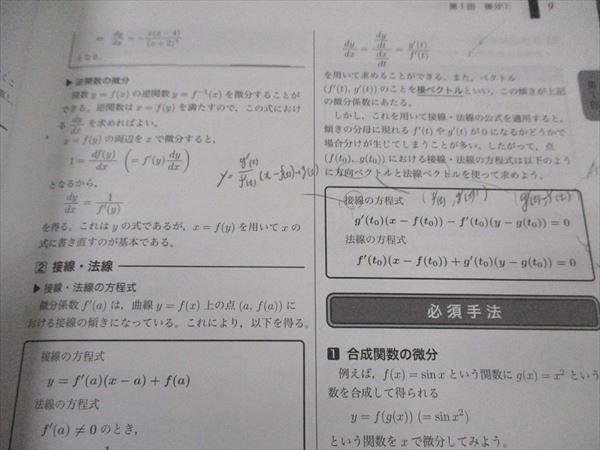 第1回 微分(1) 9
⇔ dy/dx = -x(x-4)/(x+2)^4
となる。
▶逆関数の微分
関数 y = f(x) の逆関数 y = f⁻¹(x) を微分することが
できる。逆関数は x = f(y) を満たすので、この式におけ
る dy/dx を求めればよい。
x = f(y) の両辺を x で微分すると、
1 = df(y)/dx (= f′(y) dy/dx)
となるから、
dy/dx = 1/f′(y)
を得る。これは y の式であるが、x = f(y) を用いて x の
式に書き直すのが基本である。
2 接線・法線
▶接線・法線の方程式
微分係数 f′(a) は、曲線 y = f(x) 上の点 (a, f(a)) に
おける接線の傾きになっている。これにより、以下を得る。
接線の方程式
y = f′(a)(x − a) + f(a)
法線の方程式
f′(a) ≠ 0 のとき、
y = g′(t)/f′(t) (x − f(t)) + g(t)
dy/dx = (dy/dt)/(dx/dt) = g′(t)/f′(t)
を用いて求めることができる。また、ベクトル
(f′(t), g′(t)) のことを接ベクトルといい、この傾きが上記
の微分係数にあたる。
しかし、これを用いて接線・法線の公式を適用すると、
傾きの分母に現れる f′(t) や g′(t) が 0 になるかどうかで
場合分けが生じてしまうことが多い。したがって、点
(f(t₀), g(t₀)) における接線・法線の方程式は以下のよう
に方向ベクトルと法線ベクトルを使って求めよう。
接線の方程式
g′(t₀)(x − f(t₀)) − f′(t₀)(y − g(t₀)) = 0
法線の方程式
f′(t₀)(x − f(t₀)) + g′(t₀)(y − g(t₀)) = 0
必須手法
1 合成関数の微分
例えば、f(x) = sin x という関数に g(x) = x² という
数を合成して得られる
y = f(g(x)) (= sin x²)
という関数を x で微分してみよう。